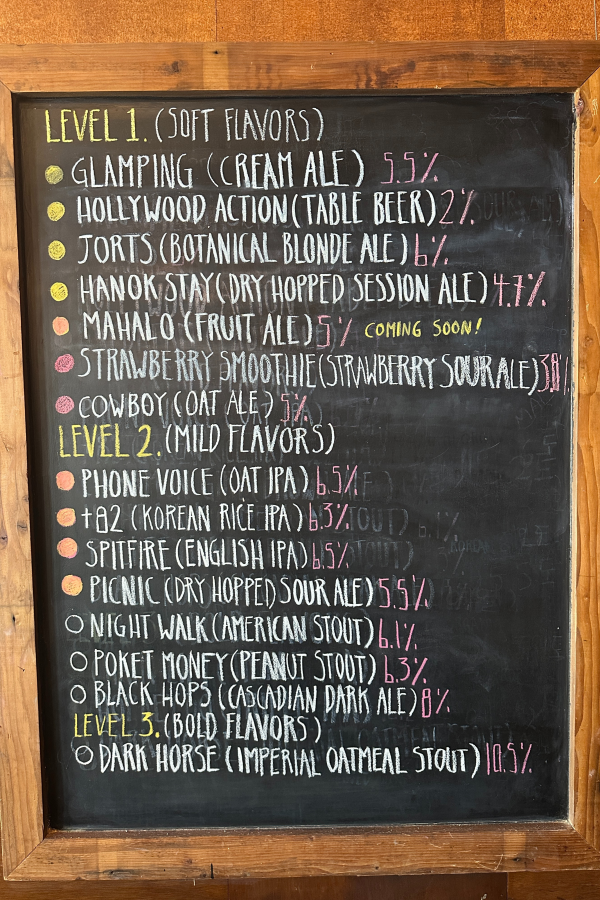 LEVEL 1. (SOFT FLAVORS)
GLAMPING (CREAM ALE) 5.5%
HOLLYWOOD ACTION (TABLE BEER) 2%
JORTS (BOTANICAL BLONDE ALE) 6%
HANOK STAY (DRY HOPPED SESSION ALE) 4.7%
MAHALO (FRUIT ALE) 5% COMING SOON!
STRAWBERRY SMOOTHIE (STRAWBERRY SOUR ALE) 3.8%
COWBOY (OAT ALE) 5%
LEVEL 2. (MILD FLAVORS)
PHONE VOICE (OAT IPA) 6.5%
+82 (KOREAN RICE IPA) 6.3%
SPITFIRE (ENGLISH IPA) 6.5%
PICNIC (DRY HOPPED SOUR ALE) 5.5%
NIGHT WALK (AMERICAN STOUT) 6.1%
POKET MONEY (PEANUT STOUT) 6.3%
BLACK HOPS (CASCADIAN DARK ALE) 8%
LEVEL 3. (BOLD FLAVORS)
DARK HORSE (IMPERIAL OATMEAL STOUT) 10.5%